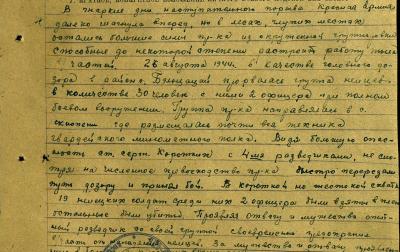 В жаркие дни наступательного порыва Красная Армия
далеко шагнула вперед, но в лесах, глухих местах
остались большие силы пр-ка из окруженных группировок
способные до некоторой степени расстроить работу тыла
и частей. 26 августа 1944г. в качестве головного до-
зора в районе прорвалась группа немцев
в количестве 30 человек с ними 2 офицера при полном
боевом вооружении. Группа пр-ка направлялась в с.
где размещалась почти вся техника
гвардейского минометного полка. Видя большую опас-
ность ст. серж. Коротких с 4-мя разведчиками, не смо-
тря на численное превосходство пр-ка быстро перерезали
путь дозору и принял бой. В короткой но жестокой схватке
19 немецких солдат среди них 2 офицера были взяты в плен
остальные были убиты. Проявляя отвагу и мужество опыт-
ный разведчик со своей группой своевременно предотвратил
немцев. За мужество и отвагу